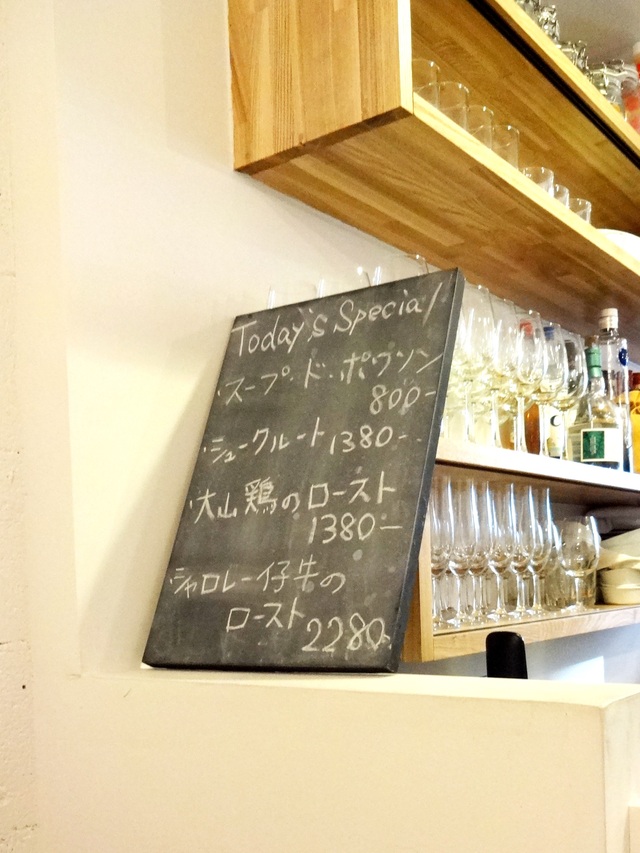 Today's Special
・スープ・ド・ポワソン
800-
・シュークルート 1380-
・大山鶏のロースト
1380-
・シャロレー仔牛の
ロースト 2280-